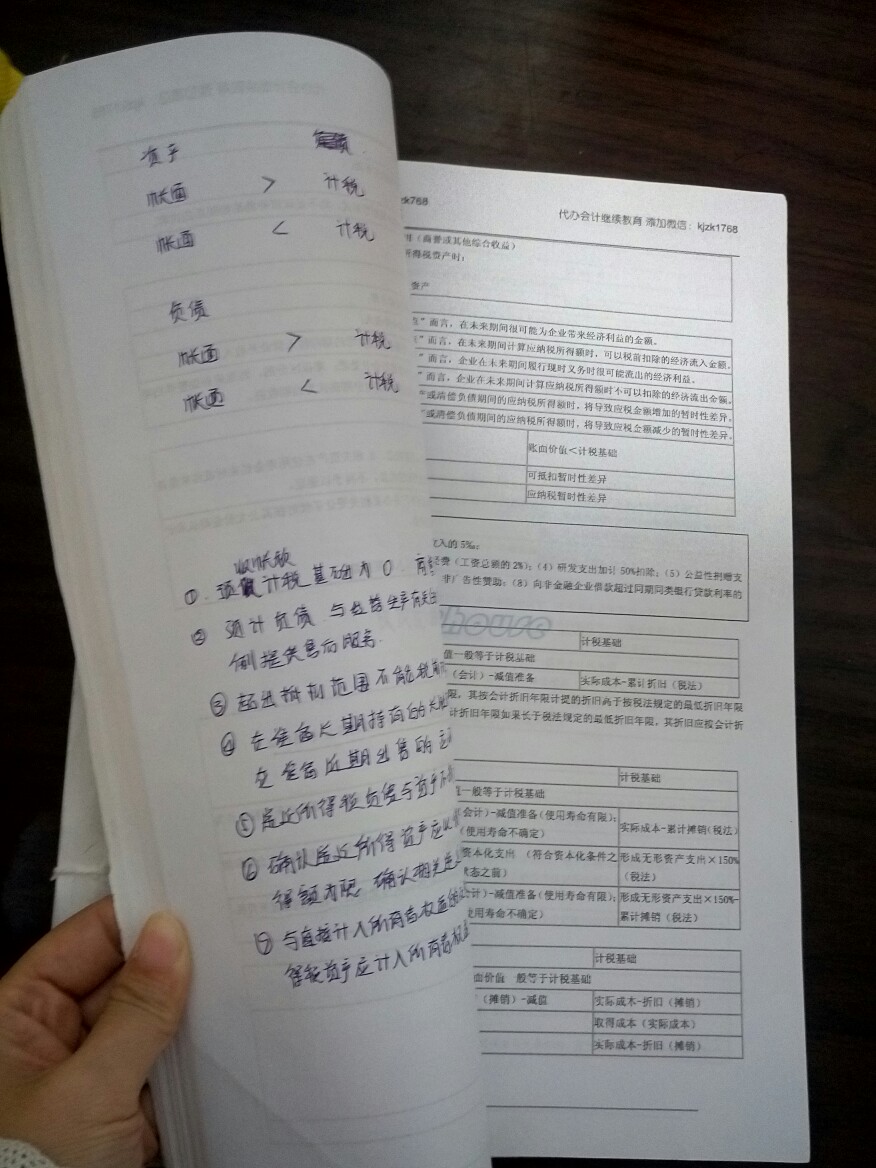 资产
帐面 > 计税
帐面 < 计税
负债
帐面 > 计税
帐面 < 计税
收帐款
① 预 计税基础为0.
② 预计负债 与
例提供售后服务.
③ 超出抵扣范围不能税前
④ 在准备长期持有的
在准备近期出售的
⑤ 递延所得税负债与资产不
⑥ 确认递延所得 资产应以
得额为限. 确认相关
⑦ 与直接计入所有者权益的
得税资产应计入所有者权益
zk768
代办会计继续教育 添加微信：kjzk1768
（商誉或其他综合收益）
所得税资产时：
资产
”而言，在未来期间很可能为企业带来经济利益的金额。
”而言，在未来期间计算应纳税所得额时，可以税前扣除的经济流入金额。
”而言，企业在未来期间履行现时义务时很可能流出的经济利益。
”而言，企业在未来期间计算应纳税所得额时不可以扣除的经济流出金额。
或清偿负债期间的应纳税所得额时，将导致应税金额增加的暂时性差异。
或清偿负债期间的应纳税所得额时，将导致应税金额减少的暂时性差异。
账面价值＜计税基础
可抵扣暂时性差异
应纳税暂时性差异
入的 5‰；
费（工资总额的 2%）；（4）研发支出加计 50%扣除；（5）公益性捐赠支
非广告性赞助；（8）向非金融企业借款超过同期同类银行贷款利率的
house
计税基础
值一般等于计税基础
（会计）-减值准备 实际成本-累计折旧（税法）
限，其按会计折旧年限计提的折旧高于按税法规定的最低折旧年限
计折旧年限如果长于税法规定的最低折旧年限，其折旧应按会计折
计税基础
值一般等于计税基础
会计）-减值准备（使用寿命有限）； 实际成本-累计摊销（税法）
（使用寿命不确定）
资本化支出 （符合资本化条件之 形成无形资产支出×150%
状态之前） （税法）
计）-减值准备（使用寿命有限）； 形成无形资产支出×150%-
使用寿命不确定） 累计摊销（税法）
计税基础
面价值一般等于计税基础
（摊销）-减值 实际成本-折旧（摊销）
取得成本（实际成本）
实际成本-折旧（摊销）